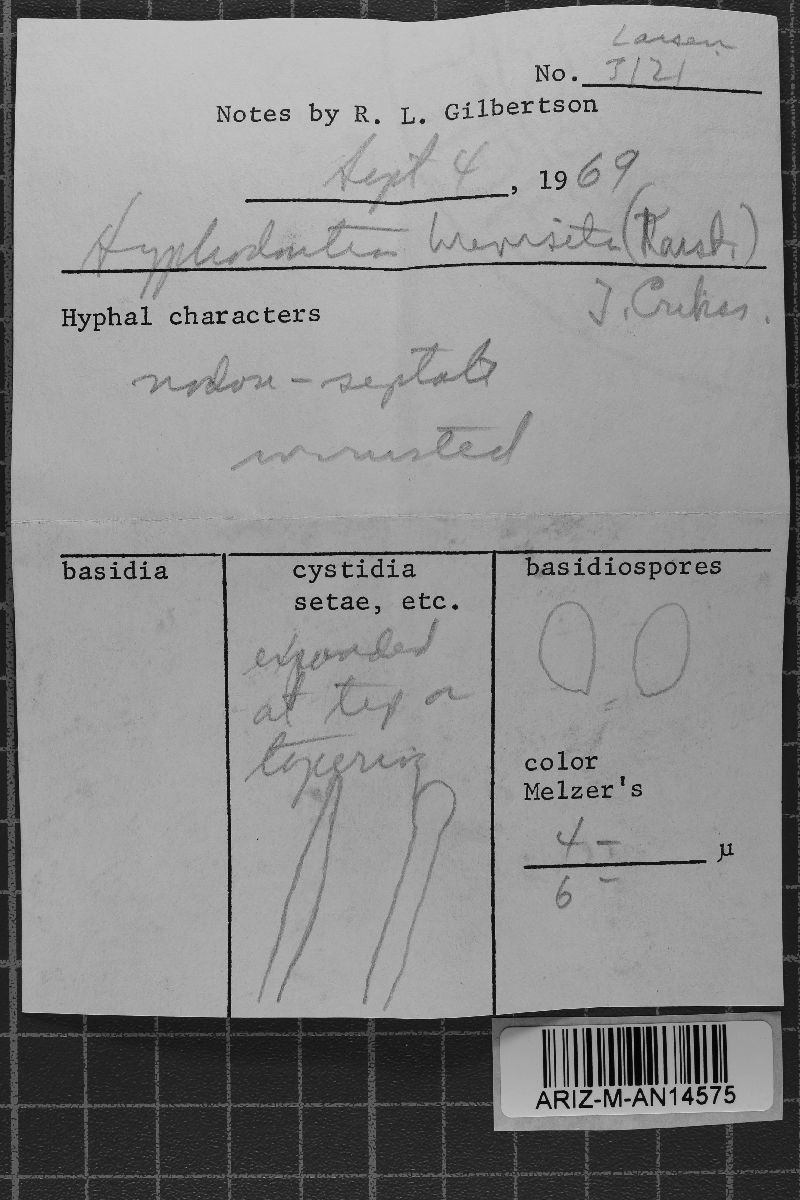 Larsen
No. 3121
Notes by R. L. Gilbertson
Sept 4, 1969
Hyphodontia breviseta (Karst.)
J. Erikss.
Hyphal characters
nodose-septate
incrusted
basidia
cystidia
setae, etc.
expanded
at tip or
tapering
basidiospores
color
Melzer's
4 –
µ
6 –
ARIZ-M-AN14575